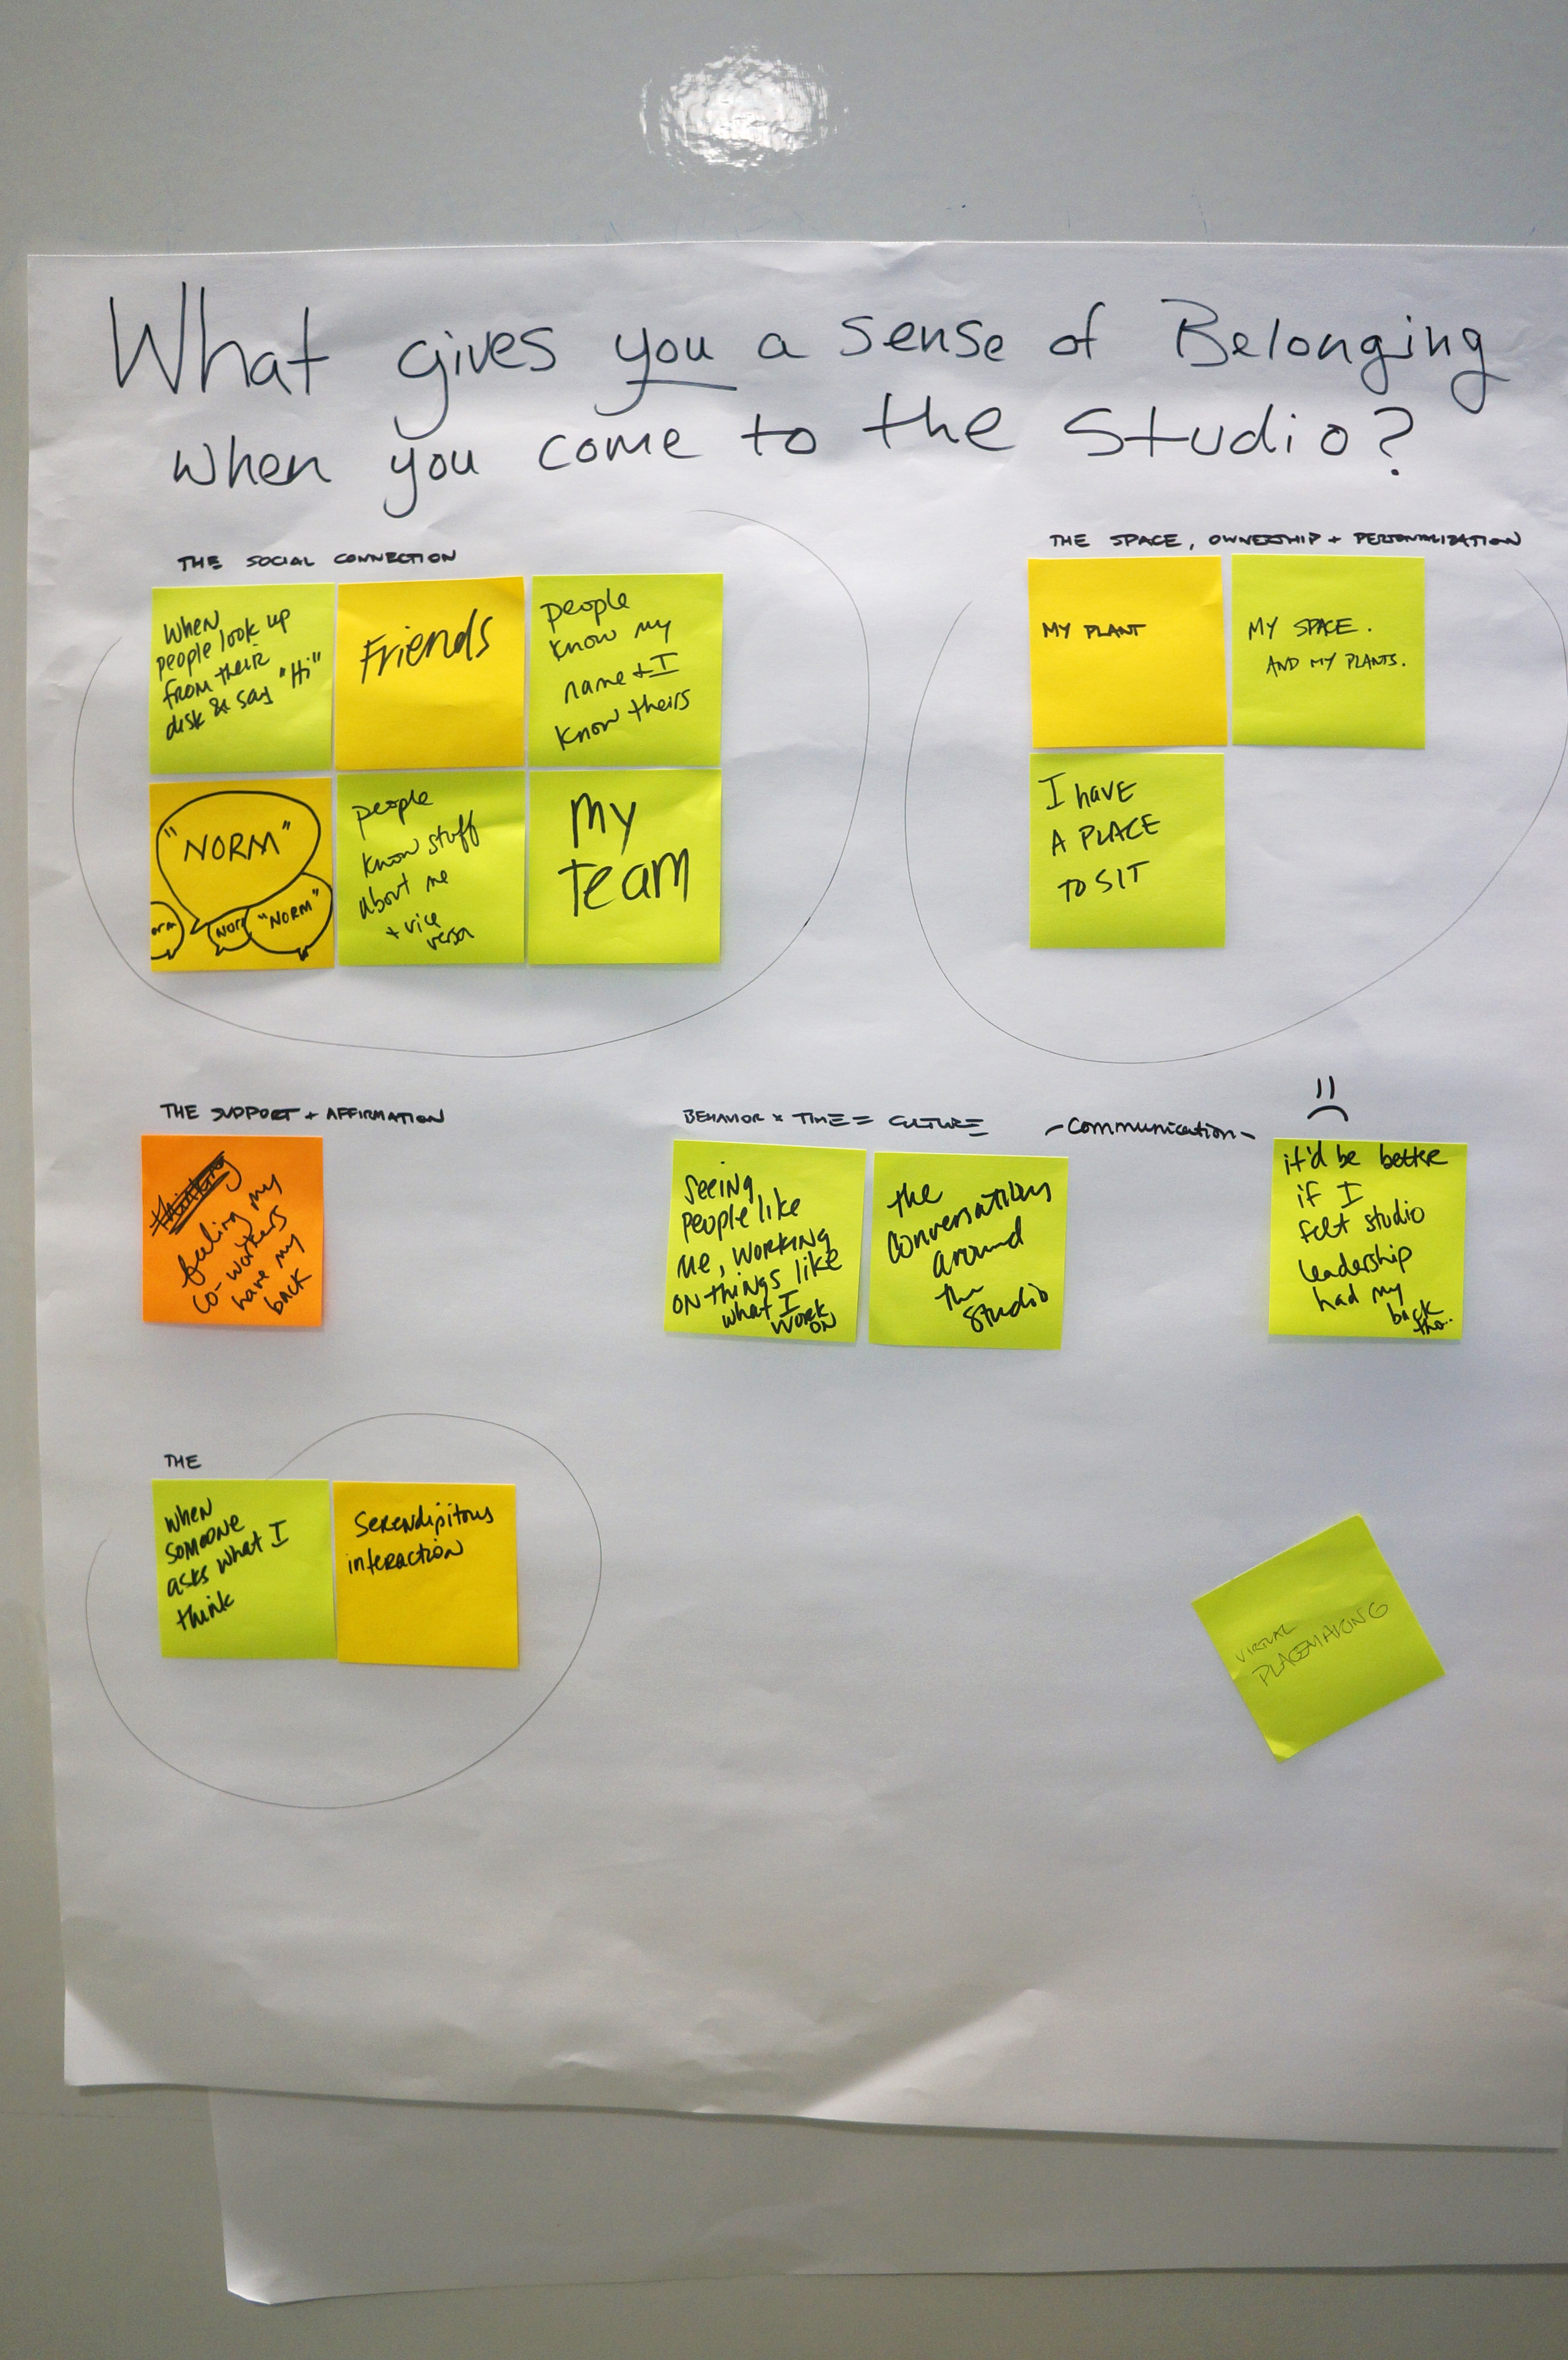 What gives you a sense of Belonging
when you come to the Studio?
THE SOCIAL CONNECTION
When
people look up
from their
disk & say "Hi"
Friends
people
know my
name + I
know theirs
"NORM"
orm
NOR
"NORM"
people
know stuff
about me
+ vice
versa
My
team
THE SPACE, OWNERSHIP + PERSONALIZATION
MY PLANT
MY SPACE.
AND MY PLANTS.
I have
A PLACE
TO SIT
THE SUPPORT + AFFIRMATION
thinking
feeling my
co-workers
have my
back
BEHAVIOR x TIME = CULTURE
seeing
people like
me, working
on things like
what I
work
on
the
conversations
around
the
studio
-Communication-
it'd be better
if I
felt studio
leadership
had my
back
tho..
THE
When
someone
asks what I
think
Serendipitous
interaction
VIRTUAL
PLACEMAKING